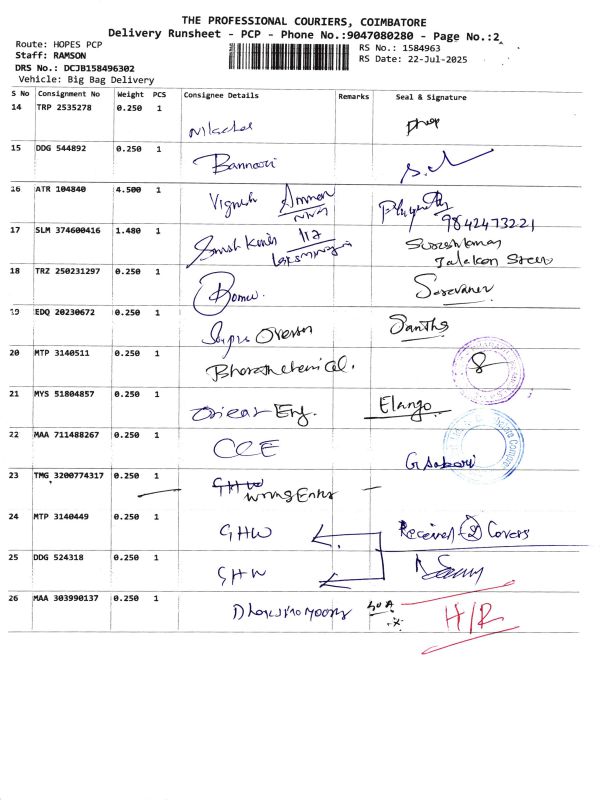 THE PROFESSIONAL COURIERS, COIMBATORE
Delivery Runsheet - PCP - Phone No.:9047080280 - Page No.:2
Route: HOPES PCP
Staff: RAMSON
DRS No.: DCJB158496302
Vehicle: Big Bag Delivery
RS No.: 1584963
RS Date: 22-Jul-2025
S No Consignment No Weight PCS Consignee Details Remarks Seal & Signature
14 TRP 2535278 0.250 1
15 DDG 544892 0.250 1 Bannari
16 ATR 104840 4.500 1 Vignesh Amman
9842473221
17 SLM 374600416 1.480 1 Suresh Kumar 117 Sureshkumar
18 TRZ 250231297 0.250 1 Saravanan
19 EDQ 20230672 0.250 1 Sanths
20 MTP 3140511 0.250 1 Bharath Chemical.
21 MYS 51804857 0.250 1 Eng. Elango
22 MAA 711488267 0.250 1 CCE G. Sabari
23 TMG 3200774317 0.250 1 GHW
Wrong Entry
24 MTP 3140449 0.250 1 GHW Received (2) Covers
25 DDG 524318 0.250 1 GHW
26 MAA 303990137 0.250 1 H/R